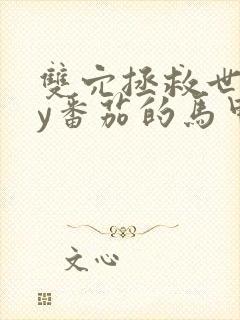 雙穴拯救世
y番茄的馬甲
文心